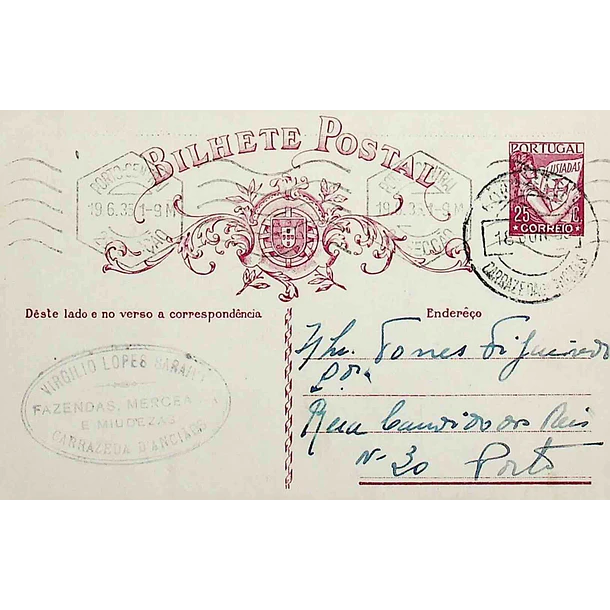 BILHETE POSTAL
PORTUGAL
LUSIADAS
25 C
CORREIO
PORTO CENTRAL
19.6.35.1-9M
SECÇÃO
19.6.35.1-9M
SECÇÃO
CARRAZEDA D'ANCIÃES
Déste lado e no verso a correspondência
Enderêço
VIRGILIO LOPES
FAZENDAS, MERCEA
E MIUDEZAS
CARRAZEDA D'ANCIÃES
Torres Figueiredo
Rua Candido dos Reis
Nº 30 Porto